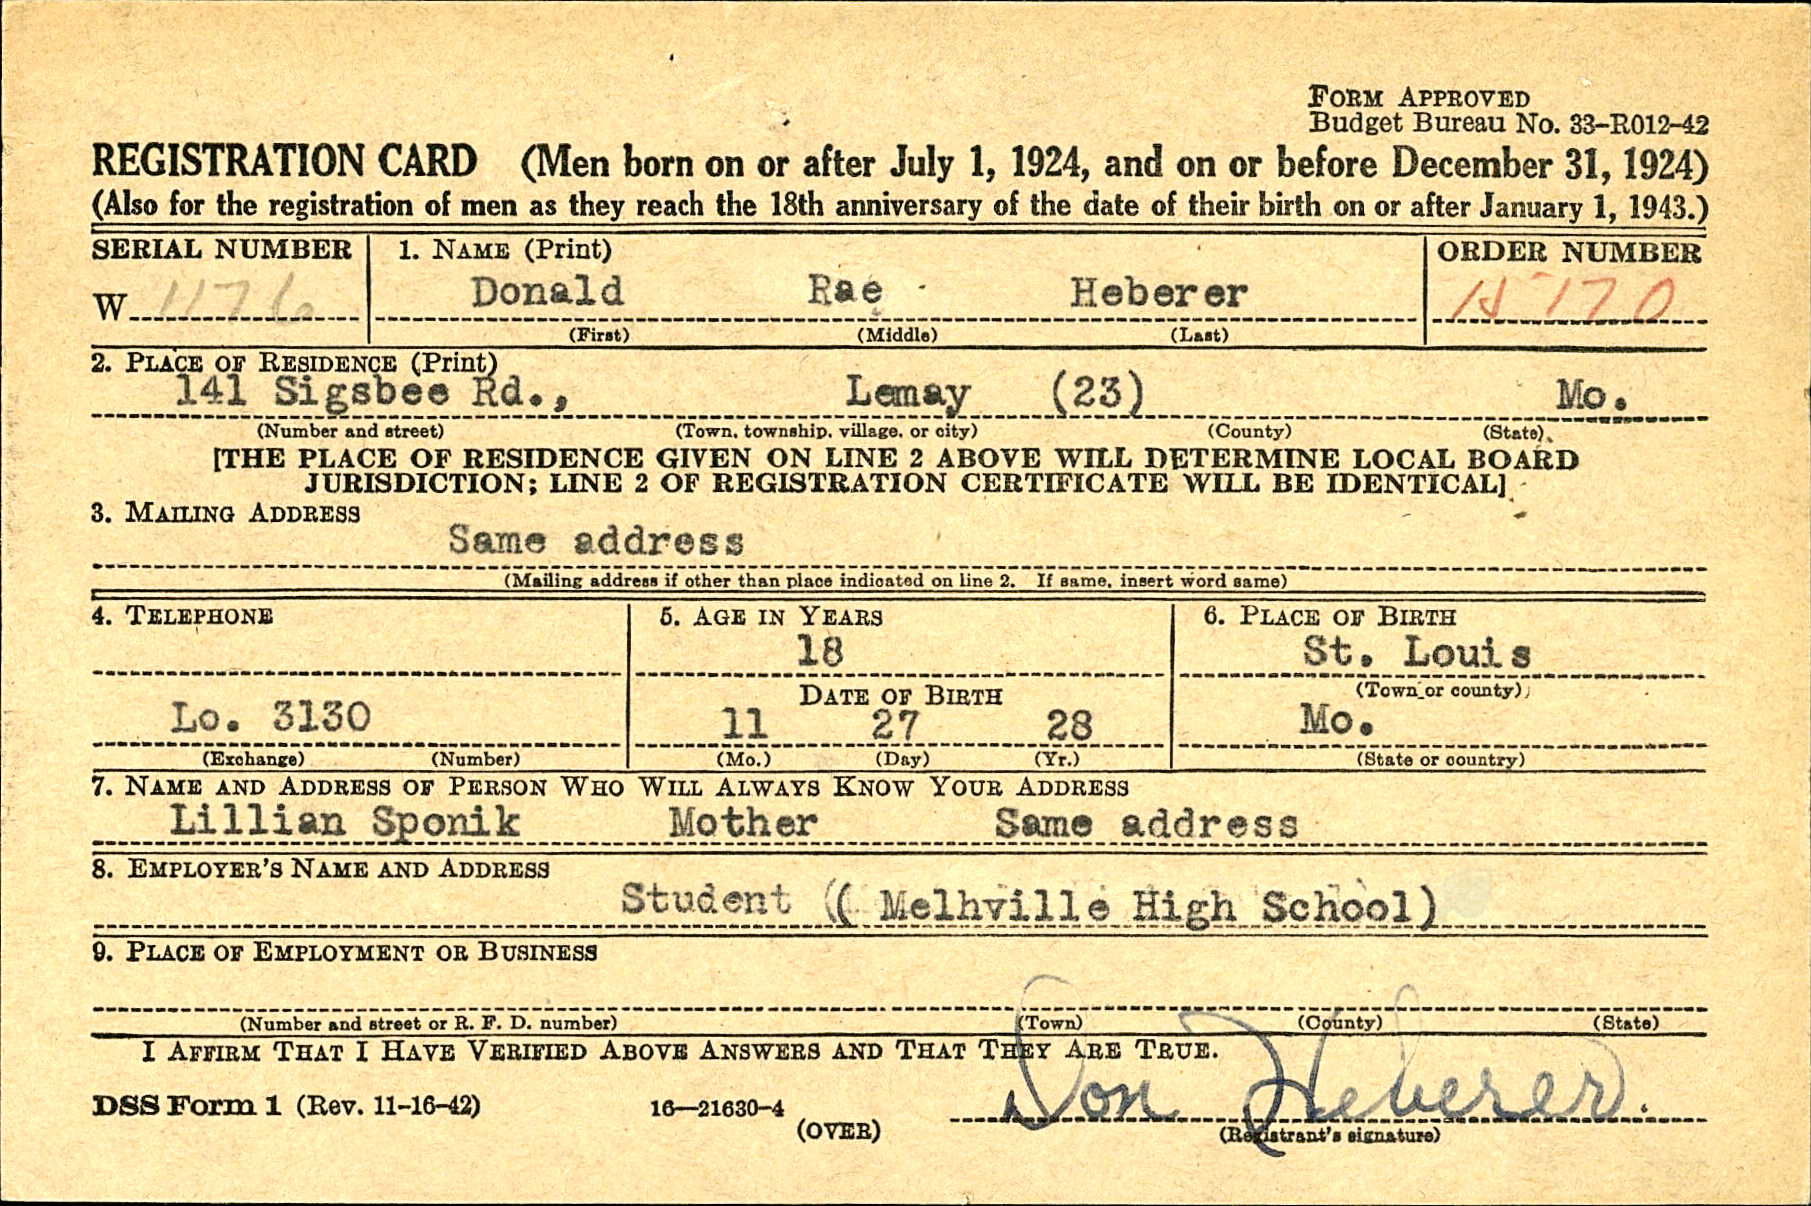 FORM APPROVED
Budget Bureau No. 33-R012-42
REGISTRATION CARD (Men born on or after July 1, 1924, and on or before December 31, 1924)
(Also for the registration of men as they reach the 18th anniversary of the date of their birth on or after January 1, 1943.)
SERIAL NUMBER 1. NAME (Print) ORDER NUMBER
W 1176 Donald Rae Heberer
(First) (Middle) (Last)
2. PLACE OF RESIDENCE (Print)
141 Sigsbee Rd., Lemay (23) Mo.
(Number and street) (Town, township, village, or city) (County) (State)
[THE PLACE OF RESIDENCE GIVEN ON LINE 2 ABOVE WILL DETERMINE LOCAL BOARD
JURISDICTION; LINE 2 OF REGISTRATION CERTIFICATE WILL BE IDENTICAL]
3. MAILING ADDRESS
Same address
(Mailing address if other than place indicated on line 2. If same, insert word same)
4. TELEPHONE 5. AGE IN YEARS 6. PLACE OF BIRTH
18 St. Louis
DATE OF BIRTH (Town or county)
Lo. 3130 11 27 28 Mo.
(Exchange) (Number) (Mo.) (Day) (Yr.) (State or country)
7. NAME AND ADDRESS OF PERSON WHO WILL ALWAYS KNOW YOUR ADDRESS
Lillian Sponik Mother Same address
8. EMPLOYER'S NAME AND ADDRESS
Student (( Melhville High School)
9. PLACE OF EMPLOYMENT OR BUSINESS
(Number and street or R. F. D. number) (Town) (County) (State)
I AFFIRM THAT I HAVE VERIFIED ABOVE ANSWERS AND THAT THEY ARE TRUE.
DSS Form 1 (Rev. 11-16-42) 16—21630-4 Don Heberer.
(OVER) (Registrant's signature)